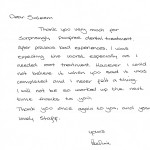 Dear Suleman
Thank you very much for
Surprisingly painfree dental treatment
After previous bad experiences. I was
expecting the worse, especially as I
needed root treatment. However I could
not believe it when you said it was
completed and I never felt a thing.
I will not be so worried the next
time thanks to you.
Thank you once again to you, and your
lovely staff.
Yours
Pauline